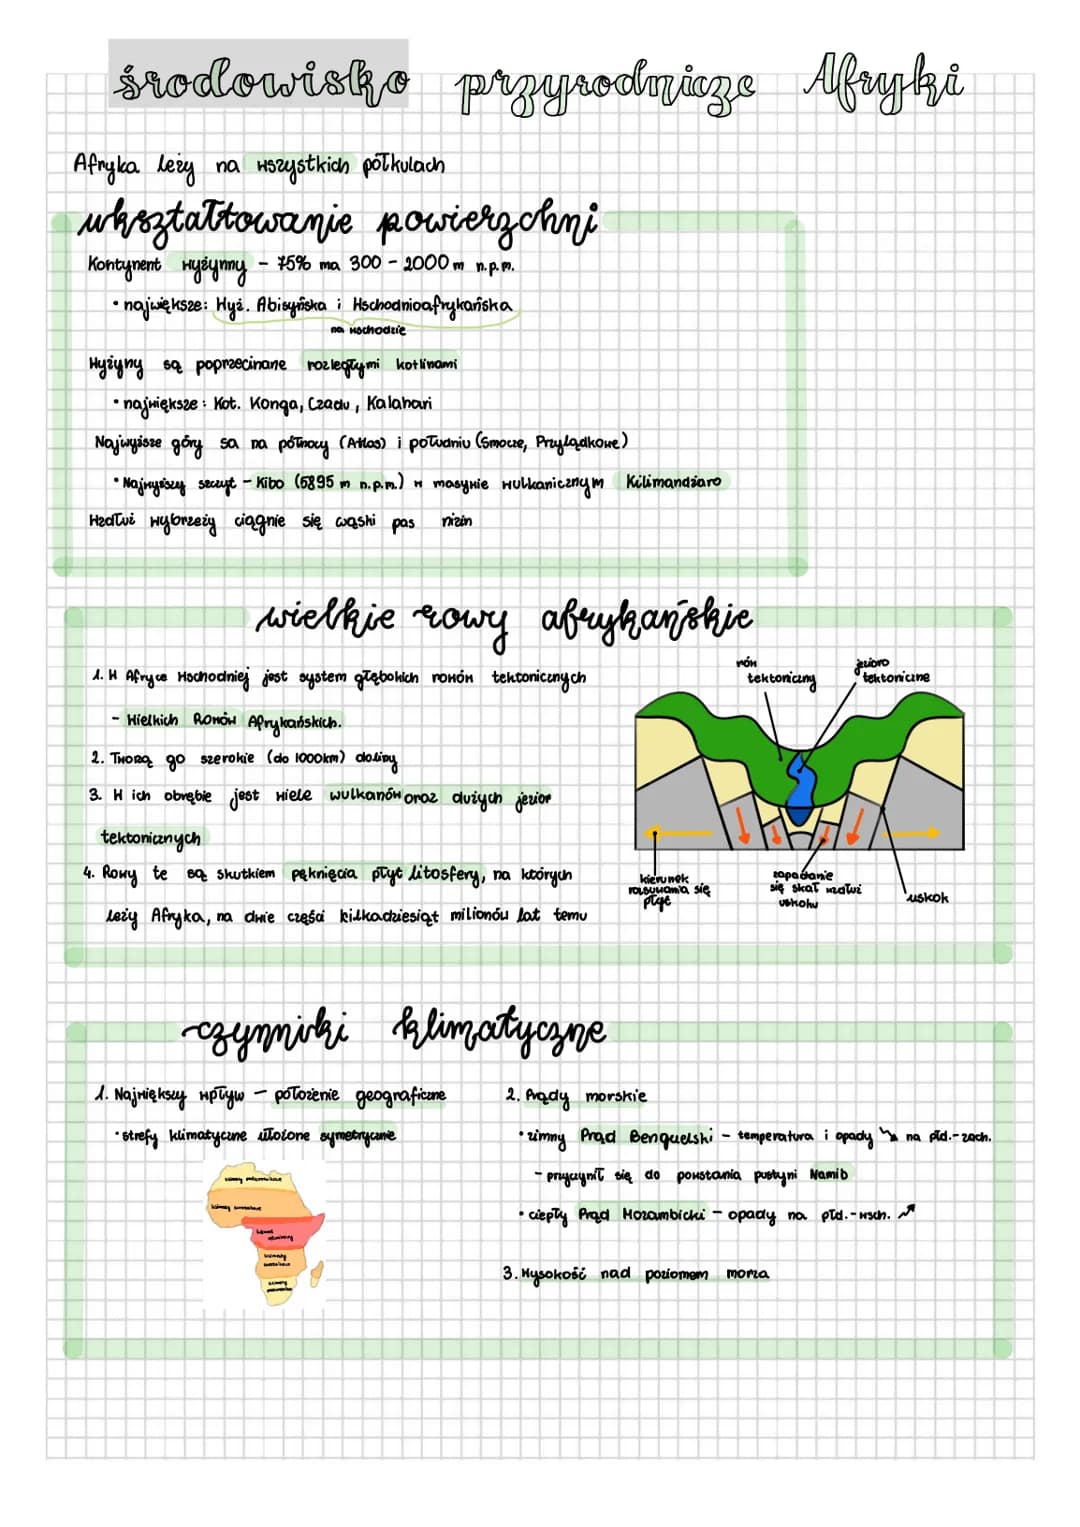 środowisko przyrodnicze Afryki
Afryka leży na wszystkich półkulach
ukształtowanie powierzchni
Kontynent wyżynny – 75% ma 300 - 2000 m n.p.m.
• największe: Wyż. Abisyńska i Wschodnioafrykańska
na wschodzie
Wyżyny są poprzecinane rozległymi kotlinami
• największe: Kot. Konga, Czadu, Kalahari
Najwyższe góry sa na północy (Atlas) i południu (Smocze, Przylądkowe)
• Najwyższy szczyt – Kibo (5895 m n.p.m.) w masywie wulkanicznym Kilimandżaro
Wzdłuż wybrzeży ciągnie się wąski pas nizin
wielkie rowy afrykańskie
1. W Afryce Wschodniej jest system głębokich rowów tektonicznych
- Wielkich Rowów Afrykańskich.
2. Tworzą go szerokie (do 1000km) doliny
3. W ich obrębie jest wiele wulkanów oraz dużych jezior
tektonicznych
4. Rowy te są skutkiem pęknięcia płyt litosfery, na których
leży Afryka, na dwie części kilkadziesiąt milionów lat temu
rów
tektoniczny
jezioro
tektoniczne
kierunek
rozsuwania się
płyt
zapadanie
się skał wzdłuż
uskoku
uskok
czynniki klimatyczne
1. Największy wpływ – położenie geograficzne
• strefy klimatyczne ułożone symetrycznie
klimaty podzwrotnikowe
klimaty zwrotnikowe
klimaty
zwrotnikowe
klimaty
2. Prądy morskie
• zimny Prąd Benguelski – temperatura i opady ↘ na płd.-zach.
- przyczynił się do powstania pustyni Namib
• ciepły Prąd Mozambicki – opady na płd.-wsch. ↗
3. Wysokość nad poziomem morza